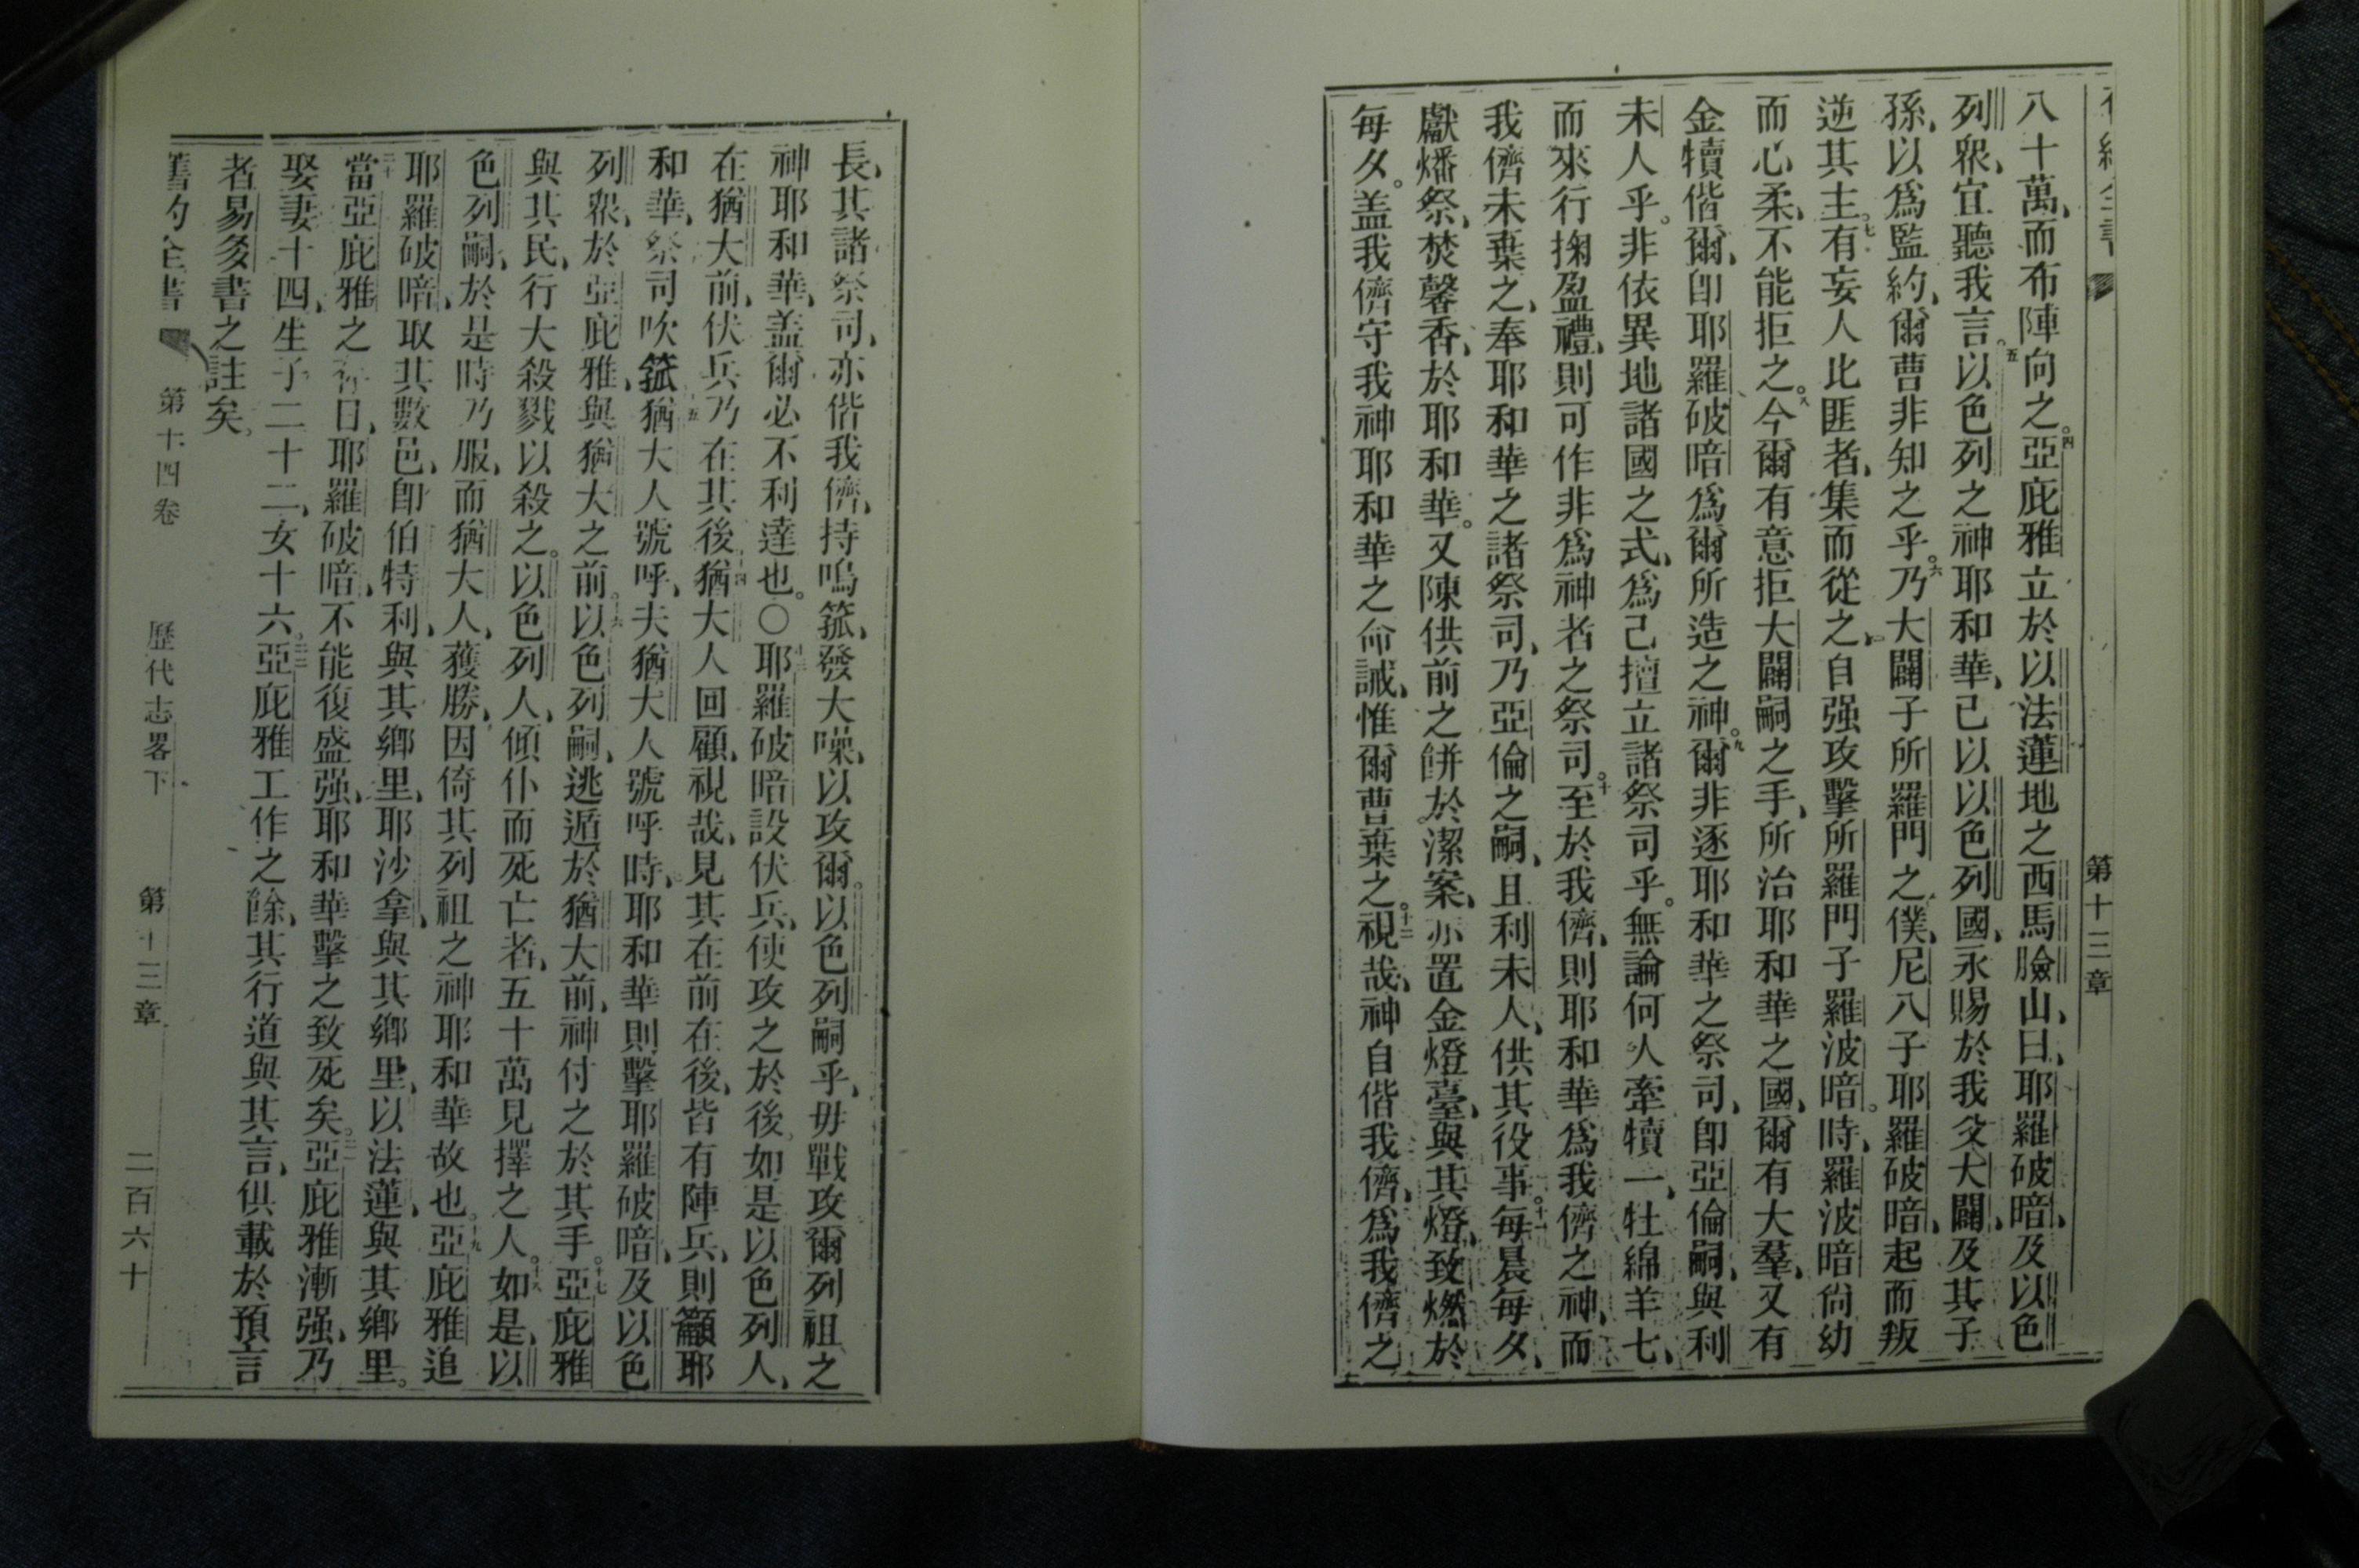 第十三章
八十萬、而布陣向之。四亞庇雅立於以法蓮地之西馬臉山、曰、耶羅破暗、及以色
列衆、宜聽我言。五以色列之神耶和華、己以以色列國、永賜於我父大闢、及其子
孫、以爲監約、爾曹非知之乎。六乃大闢子所羅門之僕、尼八子耶羅破暗、起而叛
逆其主。七有妄人比匪者、集而從之、自强攻擊所羅門子羅波暗。時、羅波暗尙幼
而心柔、不能拒之。八今爾有意拒大闢嗣之手、所治耶和華之國、爾有大羣、又有
金犢偕爾、卽耶羅破暗爲爾所造之神。九爾非逐耶和華之祭司、卽亞倫嗣、與利
未人乎。非依異地諸國之式、爲己擅立諸祭司乎。無論何人牽犢一、牡綿羊七、
而來行掬盈禮、則可作非爲神者之祭司。十至於我儕、則耶和華爲我儕之神、而
我儕未棄之、奉耶和華之諸祭司、乃亞倫之嗣、且利未人、供其役事。十一每晨每夕、
獻燔祭、焚馨香、於耶和華。又陳供前之餅於潔案、亦置金燈臺、與其燈、致燃於
每夕。盖我儕守我神耶和華之命誡、惟爾曹棄之。十二視哉、神自偕我儕、爲我儕之
長、其諸祭司、亦偕我儕、持鳴箛、發大噪、以攻爾。以色列嗣乎、毋戰攻爾列祖之
神耶和華、盖爾必不利達也。〇十三耶羅破暗設伏兵、使攻之於後、如是以色列人、
在猶大前、伏兵乃在其後。十四猶大人回顧、視哉、見其在前在後、皆有陣兵、則籲耶
和華、祭司吹箛。十五猶大人號呼、夫猶大人號呼時、耶和華則擊耶羅破暗、及以色
列衆、於亞庇雅、與猶大之前。十六以色列嗣、逃遁於猶大前、神付之於其手。十七亞庇雅
與其民、行大殺戮以殺之。以色列人、傾仆而死亡者、五十萬見擇之人。十八如是、以
色列嗣、於是時乃服、而猶大人、獲勝、因倚其列祖之神耶和華故也。十九亞庇雅追
耶羅破暗、取其數邑、卽伯特利、與其鄉里、耶沙拿、與其鄉里、以法蓮、與其鄉里。
二十當亞庇雅之日、耶羅破暗、不能復盛强、耶和華擊之致死矣。二一亞庇雅漸强、乃
娶妻十四、生子二十二、女十六。二二亞庇雅工作之餘、其行道與其言、俱載於預言
者易多書之註矣。
舊約全書 第十四卷 歷代志畧下 第十三章 二百六十